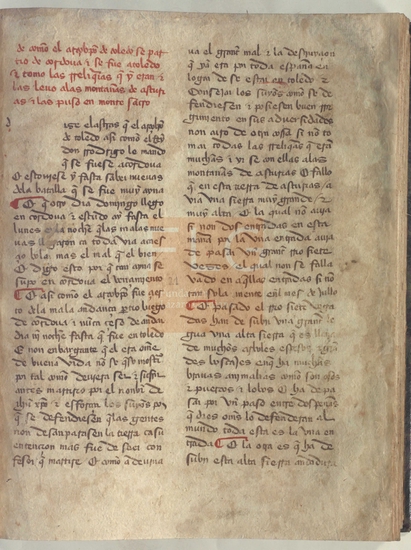 de como el arçobpo de toledo se par
tio de cordoua & se fue a toledo
& tomo las rreliquias q̃ y eran &
las leuo a las montañas de astu
rias & las puso en monte sacro
que el arçobpo
de toledo asi como el Rey
don Rodrigo lo mando
q̃ se fuese a cordoua
& estouiese y fasta saber nueuas
dela batalla q̃ se fue muy ayna
& otro dia domingo llego
en cordoua & estudo ay fasta el
lunes la noche q̃ las malas nue
uas llegaron ca toda via
mas el mal q̃ el bien
& digo esto por q̃ tan ayna se
supo en cordoua el
& asi como el arçobpo fue
dela mala andança luego
de cordoua & nũca çeso de andar
dia nj noche fasta q̃ fue en toledo
& non enbargante q̃ el era ome
de buena vida no se q̃so mostrar
por tal como deuiera ser & sufrir
antes martirio por el nonbre de
& esforçar los suyos por
q̃ se defendiesen q̃ las gentes
non desanparasen la tierra ca su
entençion mas fue de ser con
fesor q̃ martire & como
ua el grant mal & la destruyçion
q̃ ya era por toda españa en
logar de se estar en toledo &
consejar los suyos como se de
fendiesen & posiesen buen
en sus aduersidades
non ouo de otra cosa si no to
mar todas las rreliquias q̃ era
muchas & yr se con ellas alas
montañas de asturias & fallo
q̃ en esta tierra de asturias a
via vna sierra muy grande &
muy alta & la qual no auia
si non dos entradas en esta
manera por la vna entrada auia
de pasar vn grant rio siete
vezes el qual non se falla
vado en aq̃llas entradas si no
tan sola mente en l mes de jullo
& pasado el rio siete vega
das han de subir vna grant
gua vna alta sierra q̃ es llena
de muchos arboles
en q̃ ha muchas
brauas anymalias como son osos
& puercos & lobos & ha de pa
sar por vn paso entre dos peñas
q̃ dies omes lo defenderan al
mundo todo esta es la vna en
trada & la otra es q̃ ha de
subir esta alta sierra andadura